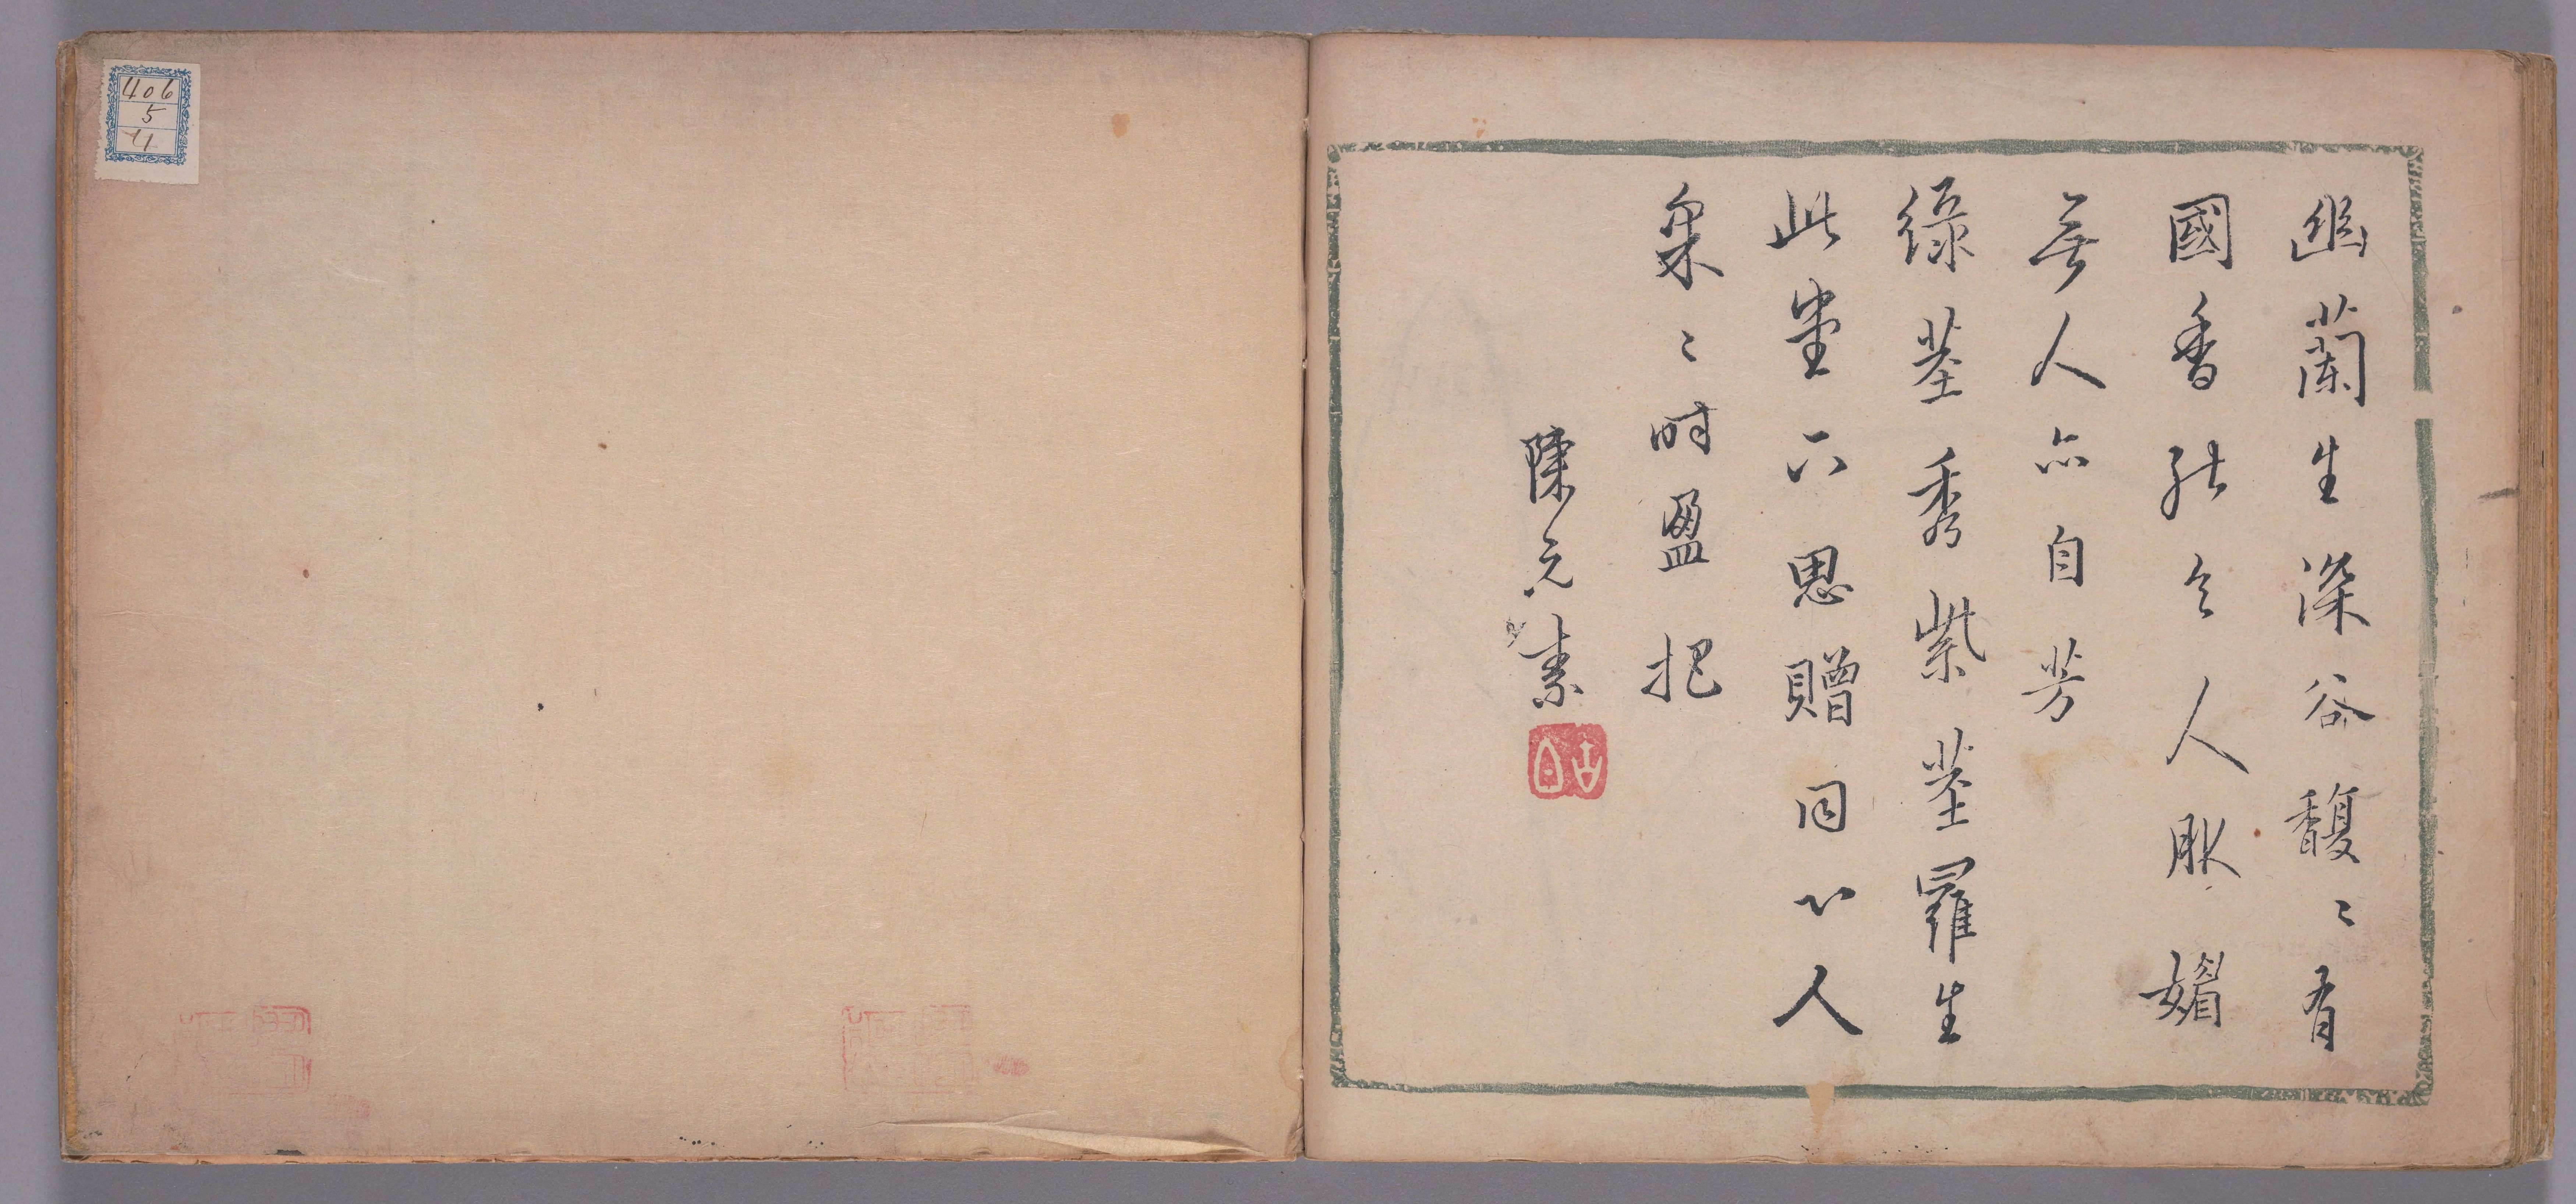 幽蘭生深谷馥〻有
國香能令人服媚
無人亦自芳
綠莖秀紫莖羅生
此堂下思贈同心人
采〻時盈把
陳元素
古白
406
5
4